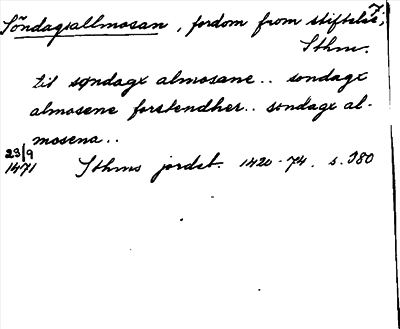 7.
Söndagsallmosan, fordom from stiftelse,
Sthm.
til søndagx almosane.. sondagx
almosene forstendher.. sondagx al-
mosena..
23/9
1471 Sthms jordeb. 1420-74. s. 380